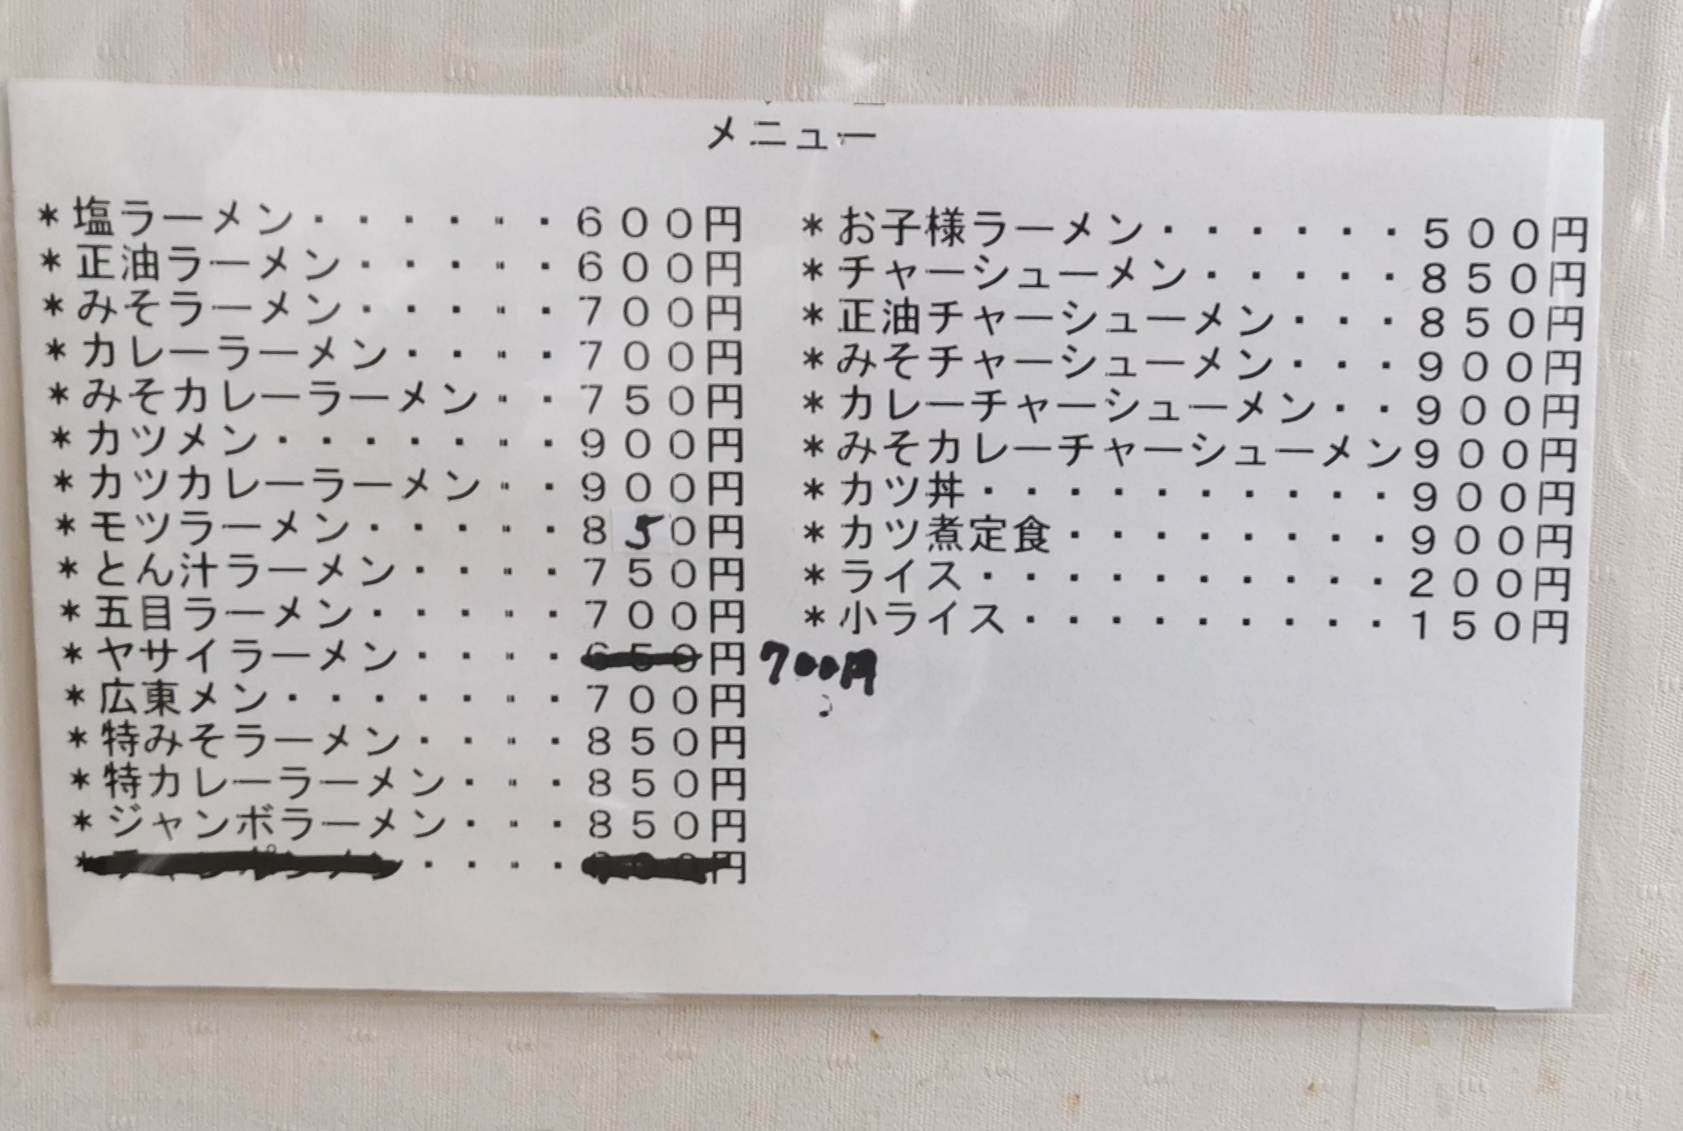 メニュー
＊塩ラーメン・・・・・・６００円
＊正油ラーメン・・・・・６００円
＊みそラーメン・・・・・７００円
＊カレーラーメン・・・・７００円
＊みそカレーラーメン・・７５０円
＊カツメン・・・・・・・９００円
＊カツカレーラーメン・・９００円
＊モツラーメン・・・・・８５０円
＊とん汁ラーメン・・・・７５０円
＊五目ラーメン・・・・・７００円
＊ヤサイラーメン・・・・６５０円 700円
＊広東メン・・・・・・・７００円
＊特みそラーメン・・・・８５０円
＊特カレーラーメン・・・８５０円
＊ジャンボラーメン・・・８５０円
＊・・・・円
＊お子様ラーメン・・・・・・５００円
＊チャーシューメン・・・・・８５０円
＊正油チャーシューメン・・・８５０円
＊みそチャーシューメン・・・９００円
＊カレーチャーシューメン・・９００円
＊みそカレーチャーシューメン９００円
＊カツ丼・・・・・・・・・・９００円
＊カツ煮定食・・・・・・・・９００円
＊ライス・・・・・・・・・・２００円
＊小ライス・・・・・・・・・１５０円